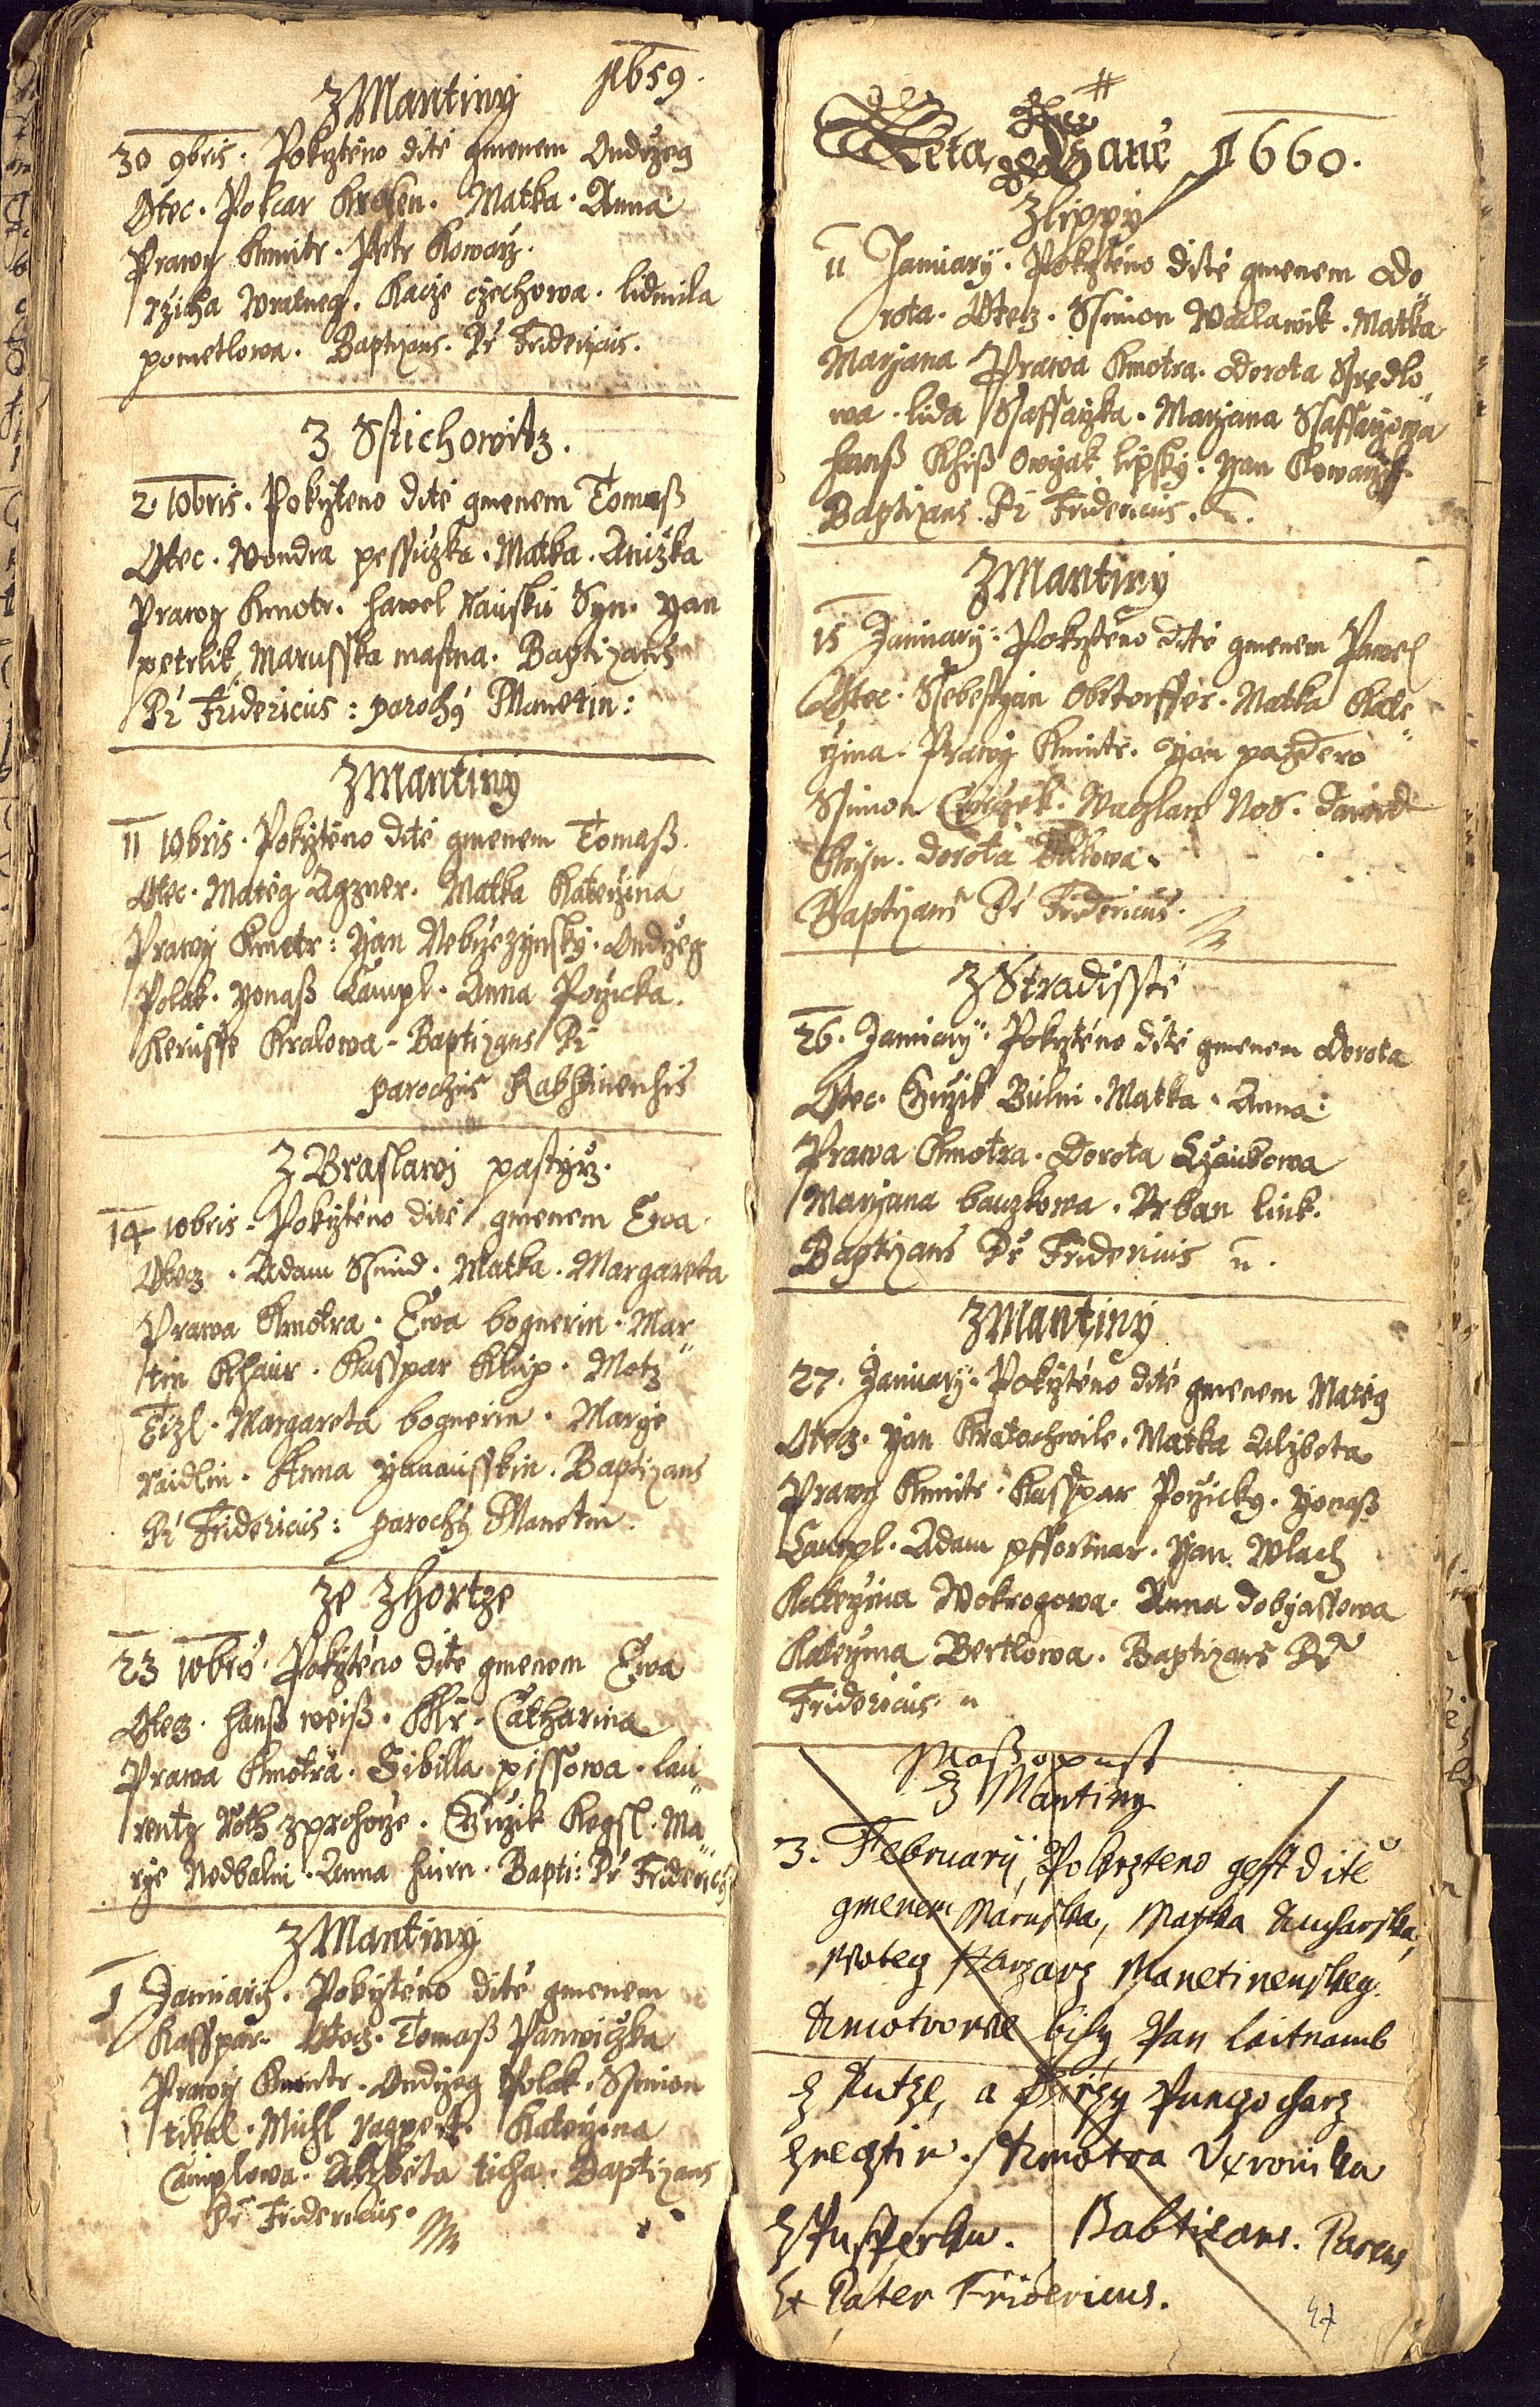 1659.
Z Mantiny
30 9bris. Pokrztěno ditě gmenem Ondrzeg
Otec. Polcar Kroken. Matka. Anna
Prawy Kmotr. Petr Kowarz.
rzicha Wratneg. Kacze czechowa. lidmila
pometlowa. Baptizans. Pr Fridericus.
Z Sstichowitz.
2 10bris. Pokrzteno ditě gmenem Tomaß
Otec. Wondra pessuzka. Matka. Aniczka
Prawy Kmotr. hawel Syn. Yan
petrlik Marusska mastna. Baptizans
Pr Fridericus: parochus Manetin:
Z Mantiny
11 10bris. Pokrztěno ditě gmenem Tomaß.
Otec. Matěg Agzner. Matka Katerzina
Prawy Kmotr: Yan Nebrzezynsky. Ondrzeg
Polak. Yonaß Campl. Anna Porzicka.
Kerusse Kralowa - Baptizans Pr
parochus Rabstinensis
Z Braslawi pastyrz.
14 10bris. Pokrztěno ditě gmenem Ewa.
Otecz. Adam Smid. Matka. Margareta
Prawa Kmotra. Ewa bognerin. Mar„
tin Khaur. Kasspar Klup. Motz
Tizl. Margareta bognerin. Marye
raidlin. Anna Baptizans
Pr Fridericus: parochus Manetin.
Ze Zhortze
23 10bris. Pokrztěno ditě gmenem Ewa
Otecz. hanß weiß. Catharina
Prawa Kmotra. Sibilla pissowa. lau„
rentz Roth z prohorze. Girzik Kegsl. Ma„
rye Nedbalni. Anna hurn. Bapti: Pr Fridericus
Z Mantiny
1 January. Pokrztěno ditě gmenem
Kasspar Otecz. Tomaß Panwiczka
Prawy Kmotr. Ondrzeg Polak. Ssimon
tikal. Michl ragpert. Katerzina
Camplowa. Alzbeta ticha. Baptizans
Pr Fridericus.
Leta Paně 1660.
Z lippy
11 January. Pokrztěno ditě gmenem Do„
rota. Otecz. Ssimon Waclawik. Matka
Maryana Prawa Kmotra. Dorota Sfredlo„
wa. lida Ssaffarzka. Maryana Ssaffarzowa
hanß Khiß Owczak lipsky. Yan Kowarzik
Baptizans. Pr Fridericus.
Z Mantiny
15 January. Pokrztěno ditě gmenem Pawel
Otec. Ssebestyan Obstorffer. Matka Kate„
rzina. Prawy Kmotr. Yan pazdero
Ssimon Waczlaw Nos. Dawid
Krzn. Dorota
Baptizans Pr Fridericus.
Z Stradisstě
26. January. Pokrztěno ditě gmenem Dorota
Otec. Girzik Bulni. Matka. Anna:
Prawa Kmotra. Dorota Czaubowa
Maryana bauzkowa. Urban link.
Baptizans Pr Fridericus
Z Mantiny
27. January. Pokrztěno ditě gmenem Matěg
Otecz. Yan Kratochwile. Matka Alzbeta
Prawy Kmotr. Kasspar Porzicky. Yonaß
Campl. Adam pffortnar. Yan Wlach
Katerzina Wokrogowa. Anna Tobyassowa
Katerzina Bertlowa. Baptizans Pr
Fridericus.
Maßopust
z Mantiny
3. February, Pokrzteno gest ditě
gmenem Maruska, Matka Kucharska,
Woteg Manetinenskeg.
Kmotrowe bily Pan laitnamb
z Kutze, a Girzy Pungocharz
z necztin. Kmotra Veronika
z Pussperku. Babtizans. Parens
Pater Fridericus.
47